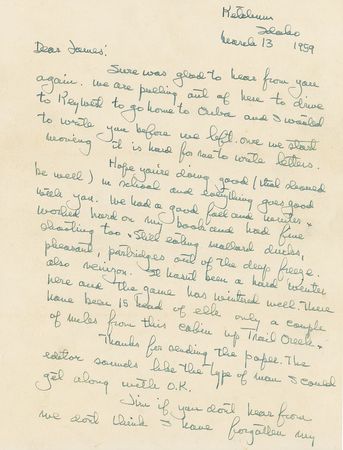 Ketchum
Idaho
March 13 1959
Dear James:
Sure was glad to hear from you
again. We are pulling out of here to drive
to Keywest to go home to Cuba and I wanted
to write you before we left. Once we start
moving it is hard for me to write letters.
Hope you're doing good (that should
be well) in school and everything goes good
with you. We had a good fall and winter.
Worked hard on my book and had fine
shooting too. Still eating mallard ducks,
pheasant, partridges out of the deep freeze.
also venison. It hasn't been a hard winter
here and the game has wintered well. There
have been 15 head of elk only a couple
of miles from this cabin up Trail Creek.
Thanks for sending the paper. The
editor sounds like the type of man I could
get along with O.K.
Jim if you don't hear from
me don't think I have forgotten my